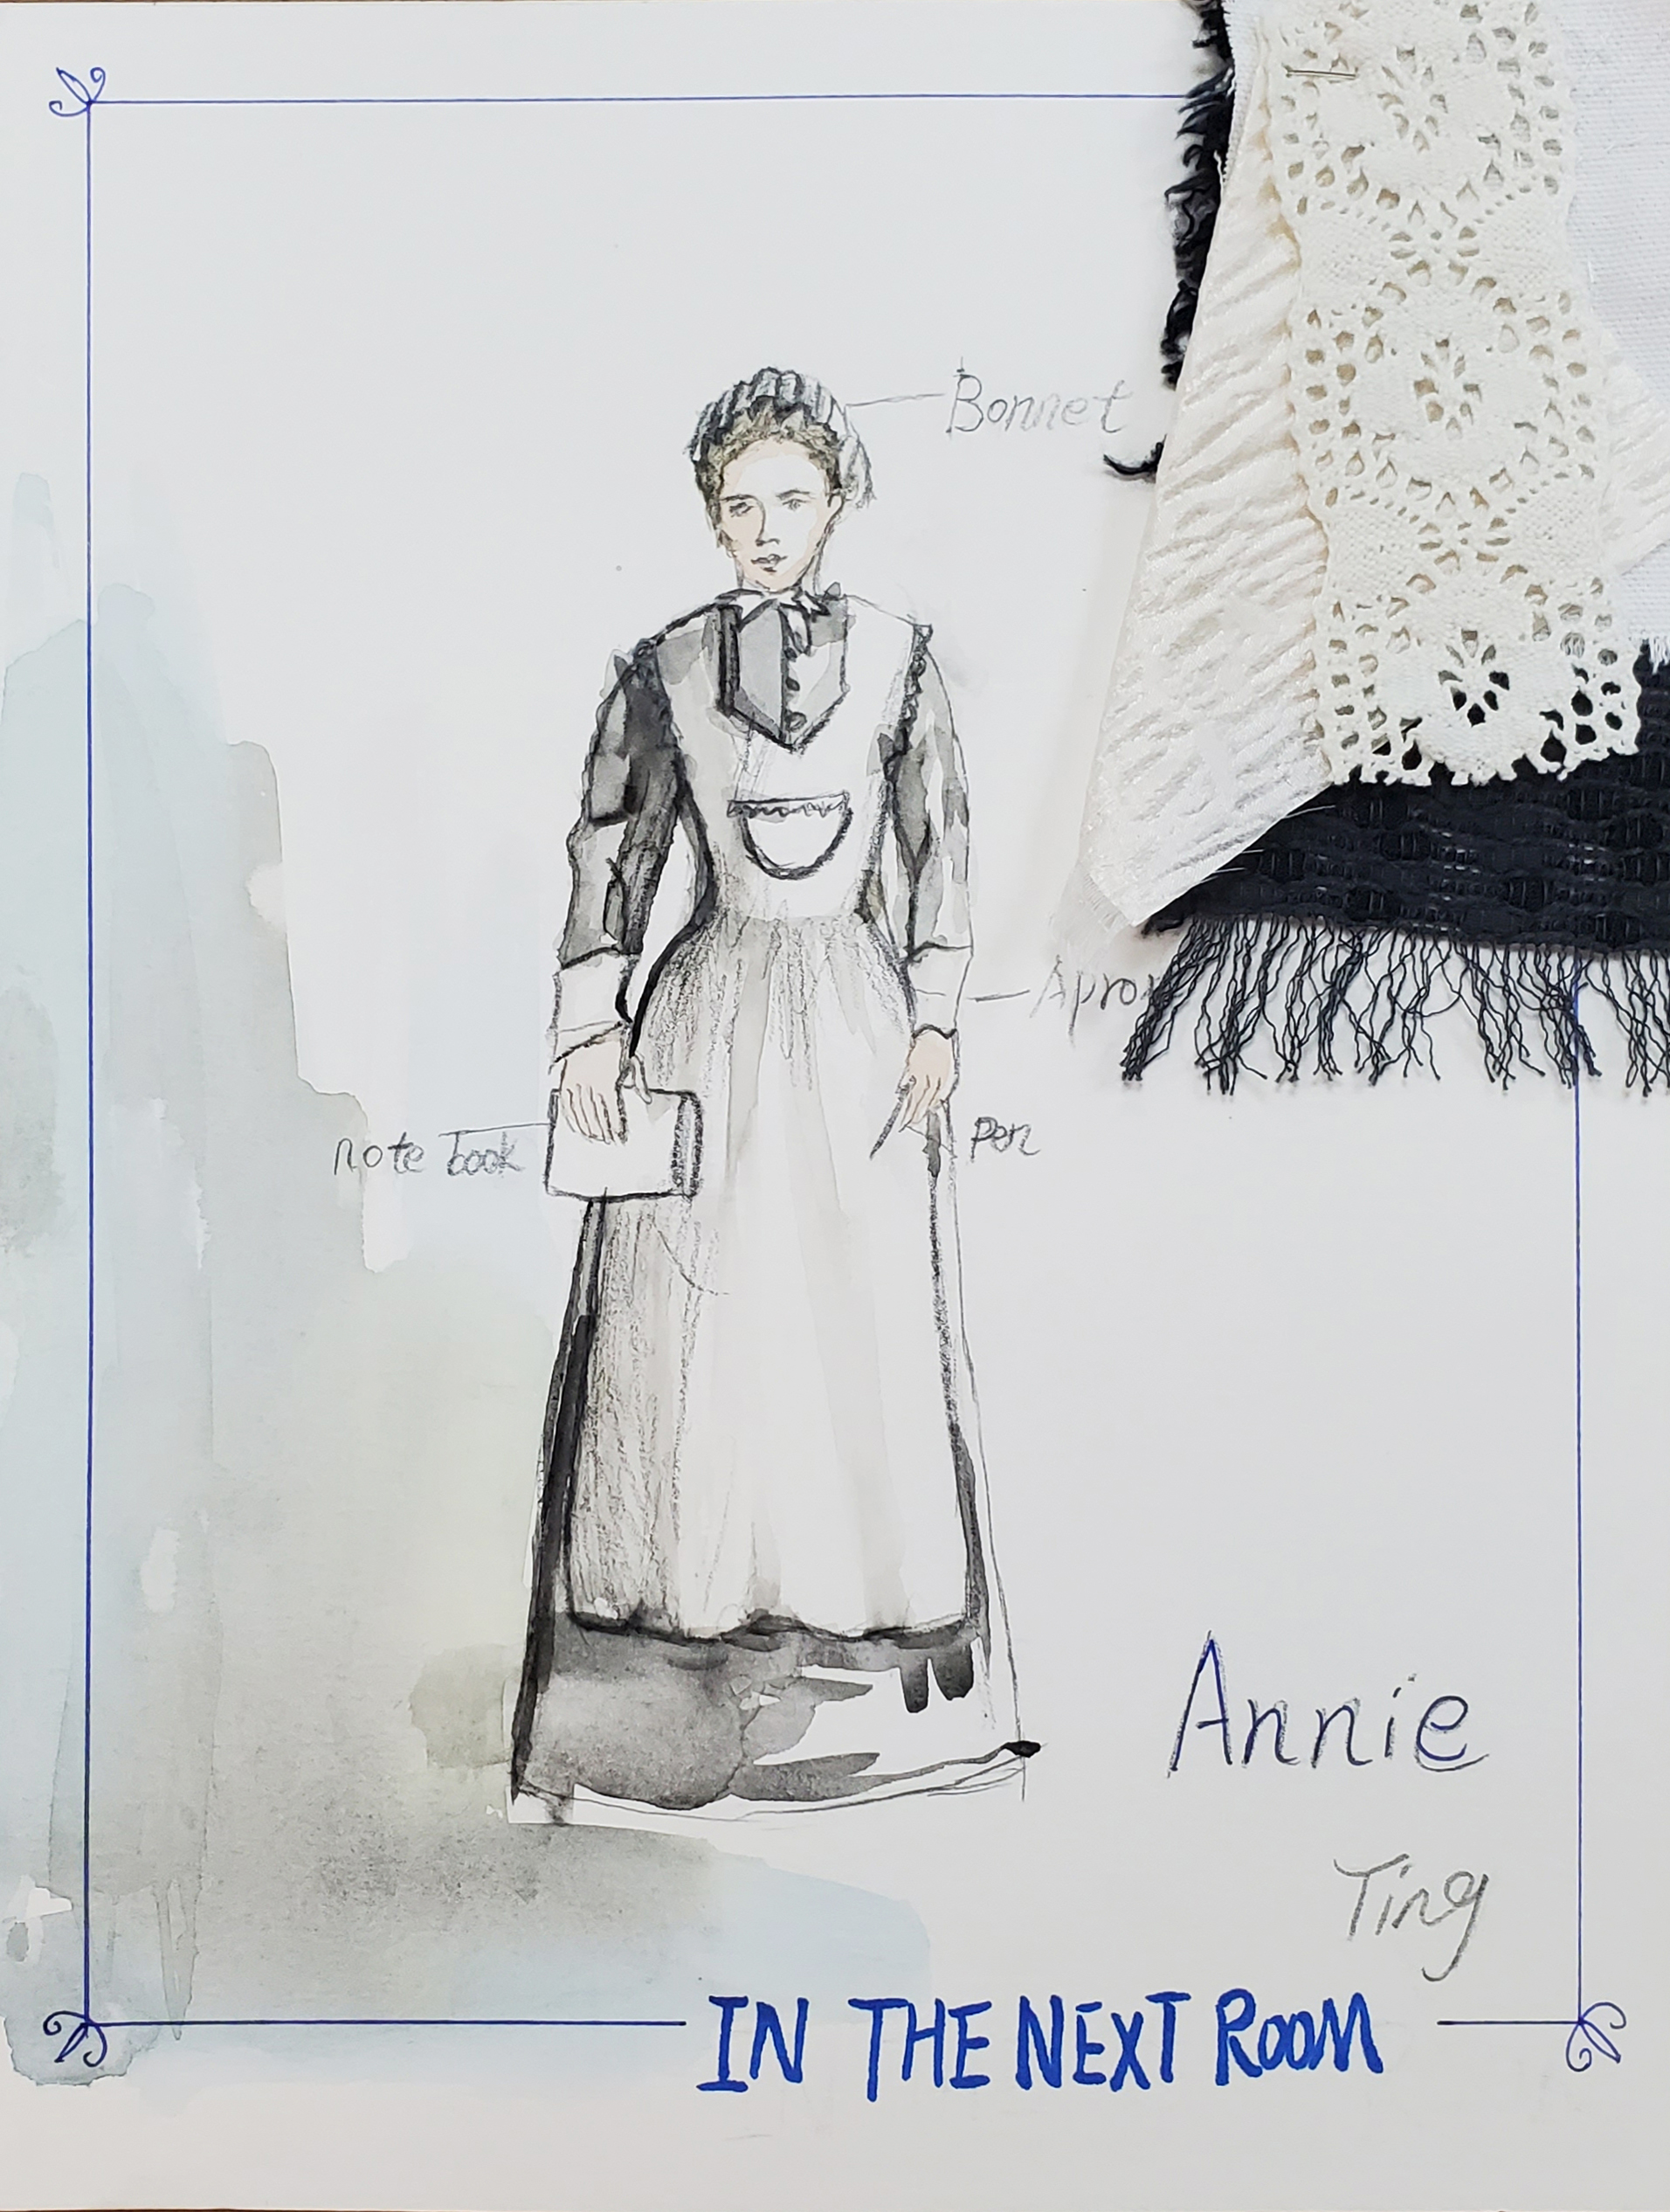 Bonnet
Apro
note book
pen
Annie
Ting
IN THE NEXT ROOM